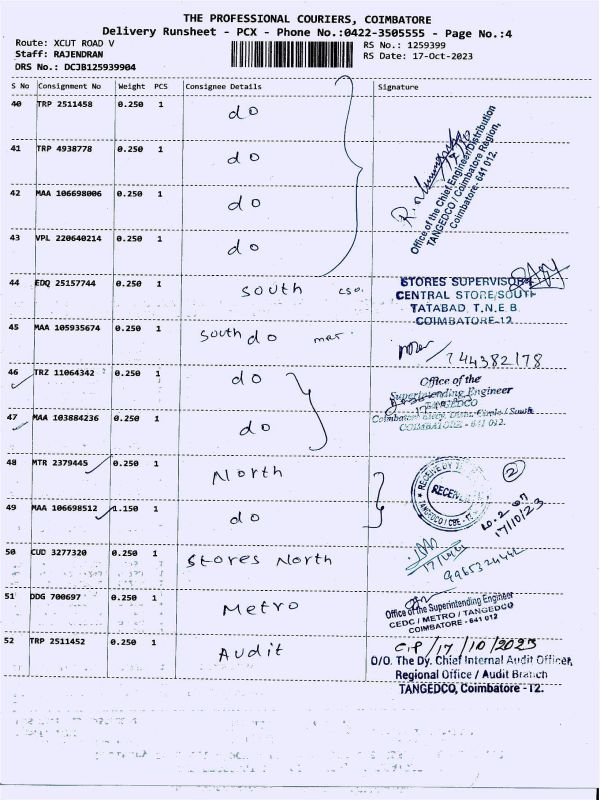 THE PROFESSIONAL COURIERS, COIMBATORE
Delivery Runsheet - PCX - Phone No.:0422-3505555 - Page No.:4
Route: XCUT ROAD V
RS No.: 1259399
Staff: RAJENDRAN
RS Date: 17-Oct-2023
DRS No.: DCJB125939904
S No Consignment No Weight PCS Consignee Details Signature
40 TRP 2511458 0.250 1 do
41 TRP 4938778 0.250 1 do
42 MAA 106698006 0.250 1 do
43 VPL 220640214 0.250 1 do
Office of the Chief Engineer/Distribution
TANGEDCO / Coimbatore Region,
Coimbatore- 641 012.
44 EDQ 25157744 0.250 1 South
STORES SUPERVISOR
CENTRAL STORE/SOUTH
TATABAD, T.N.E.B.
COIMBATORE-12
45 MAA 105935674 0.250 1 South do
744382178
46 TRZ 11064342 0.250 1 do
Office of the
Superintending Engineer
TANGEDCO
47 MAA 103884236 0.250 1 do
COIMBATORE - 641 012.
48 MTR 2379445 0.250 1 North
2
49 MAA 106698512 1.150 1 do
RECEIVED
TANGEDCO / CBE - 12
17/10/23
50 CUD 3277320 0.250 1 Stores North
51 DDG 700697 0.250 1 Metro
Office of the Superintending Engineer
CEDC / METRO / TANGEDCO
COIMBATORE - 641 012
52 TRP 2511452 0.250 1 Audit
17/10/2023
O/O. The Dy. Chief Internal Audit Officer,
Regional Office / Audit Branch
TANGEDCO, Coimbatore - 12.